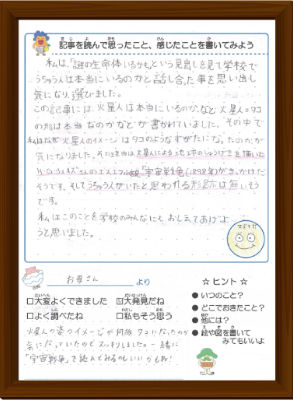 記事を読んで思ったこと、感じたことを書いてみよう
私は、「謎の生命体いるかも」という見出しを見て学校で
うちゅう人は本当にいるのかと話し合った事を思い出し
気になり、選びました。
この記事には、火星人は本当にいるのかなどと火星人のタコ
の形は本当なのかなどが書かれていました。その中で
火星人のイメージはタコのようなすがたになったのかが
気になりました。
H.G.ウェルズさんの「宇宙戦争」(1898年)がきっかけだ
そうです。そしてうちゅう人がいたと思われる形跡は無いそう
です。
私はこのことを学校のみんなにもおしえてあげよ
うと思いました。
お母さん より
□大変よくできました
☑大発見だね
□よく調べたね
□私もそう思う
火星人の姿のイメージが何故タコになったのか
気になっていたのでスッキリしました。一緒に
「宇宙戦争」を読んでみるのもいいかもね!
☆ ヒント ☆
●いつのこと?
●どこでおきたこと?
●他には?
●絵や図を書いて
みてもいいよ